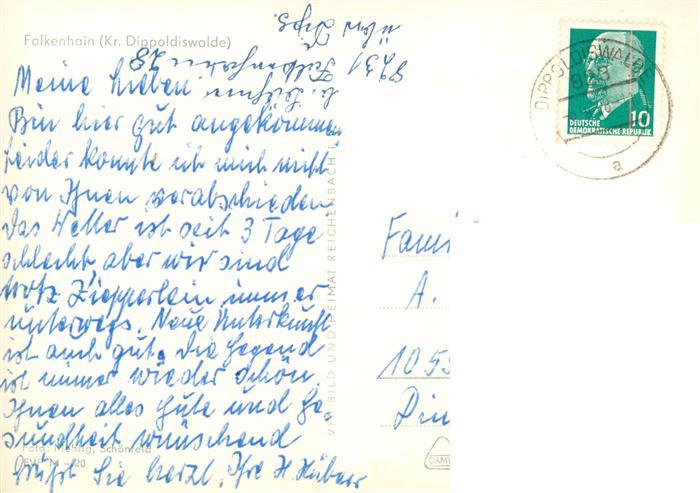 Falkenhain (Kr. Dippoldiswalde)
über Dips.
8231 Falkenhain 28
b. Büttner
Meine Lieben
Bin hier gut angekommen
Leider konnte ich mich nicht
von Ihnen verabschieden.
Das Wetter ist seit 3 Tage
schlecht aber wir sind
trotz Zipperlein immer
unterwegs. Neue Unterkunft
ist auch gut. Die Gegend
ist immer wieder schön.
Ihnen alles Gute und Ge-
sundheit wünschend
grüßt Sie herzl. Ihre H. Hübner
Foto: Mehlig, Schönfeld
VEB BILD UND HEIMAT REICHENBACH I.
DIPPOLDISWALDE
a
10
DEUTSCHE
DEMOKRATISCHE REPUBLIK
Fami
A.
1055